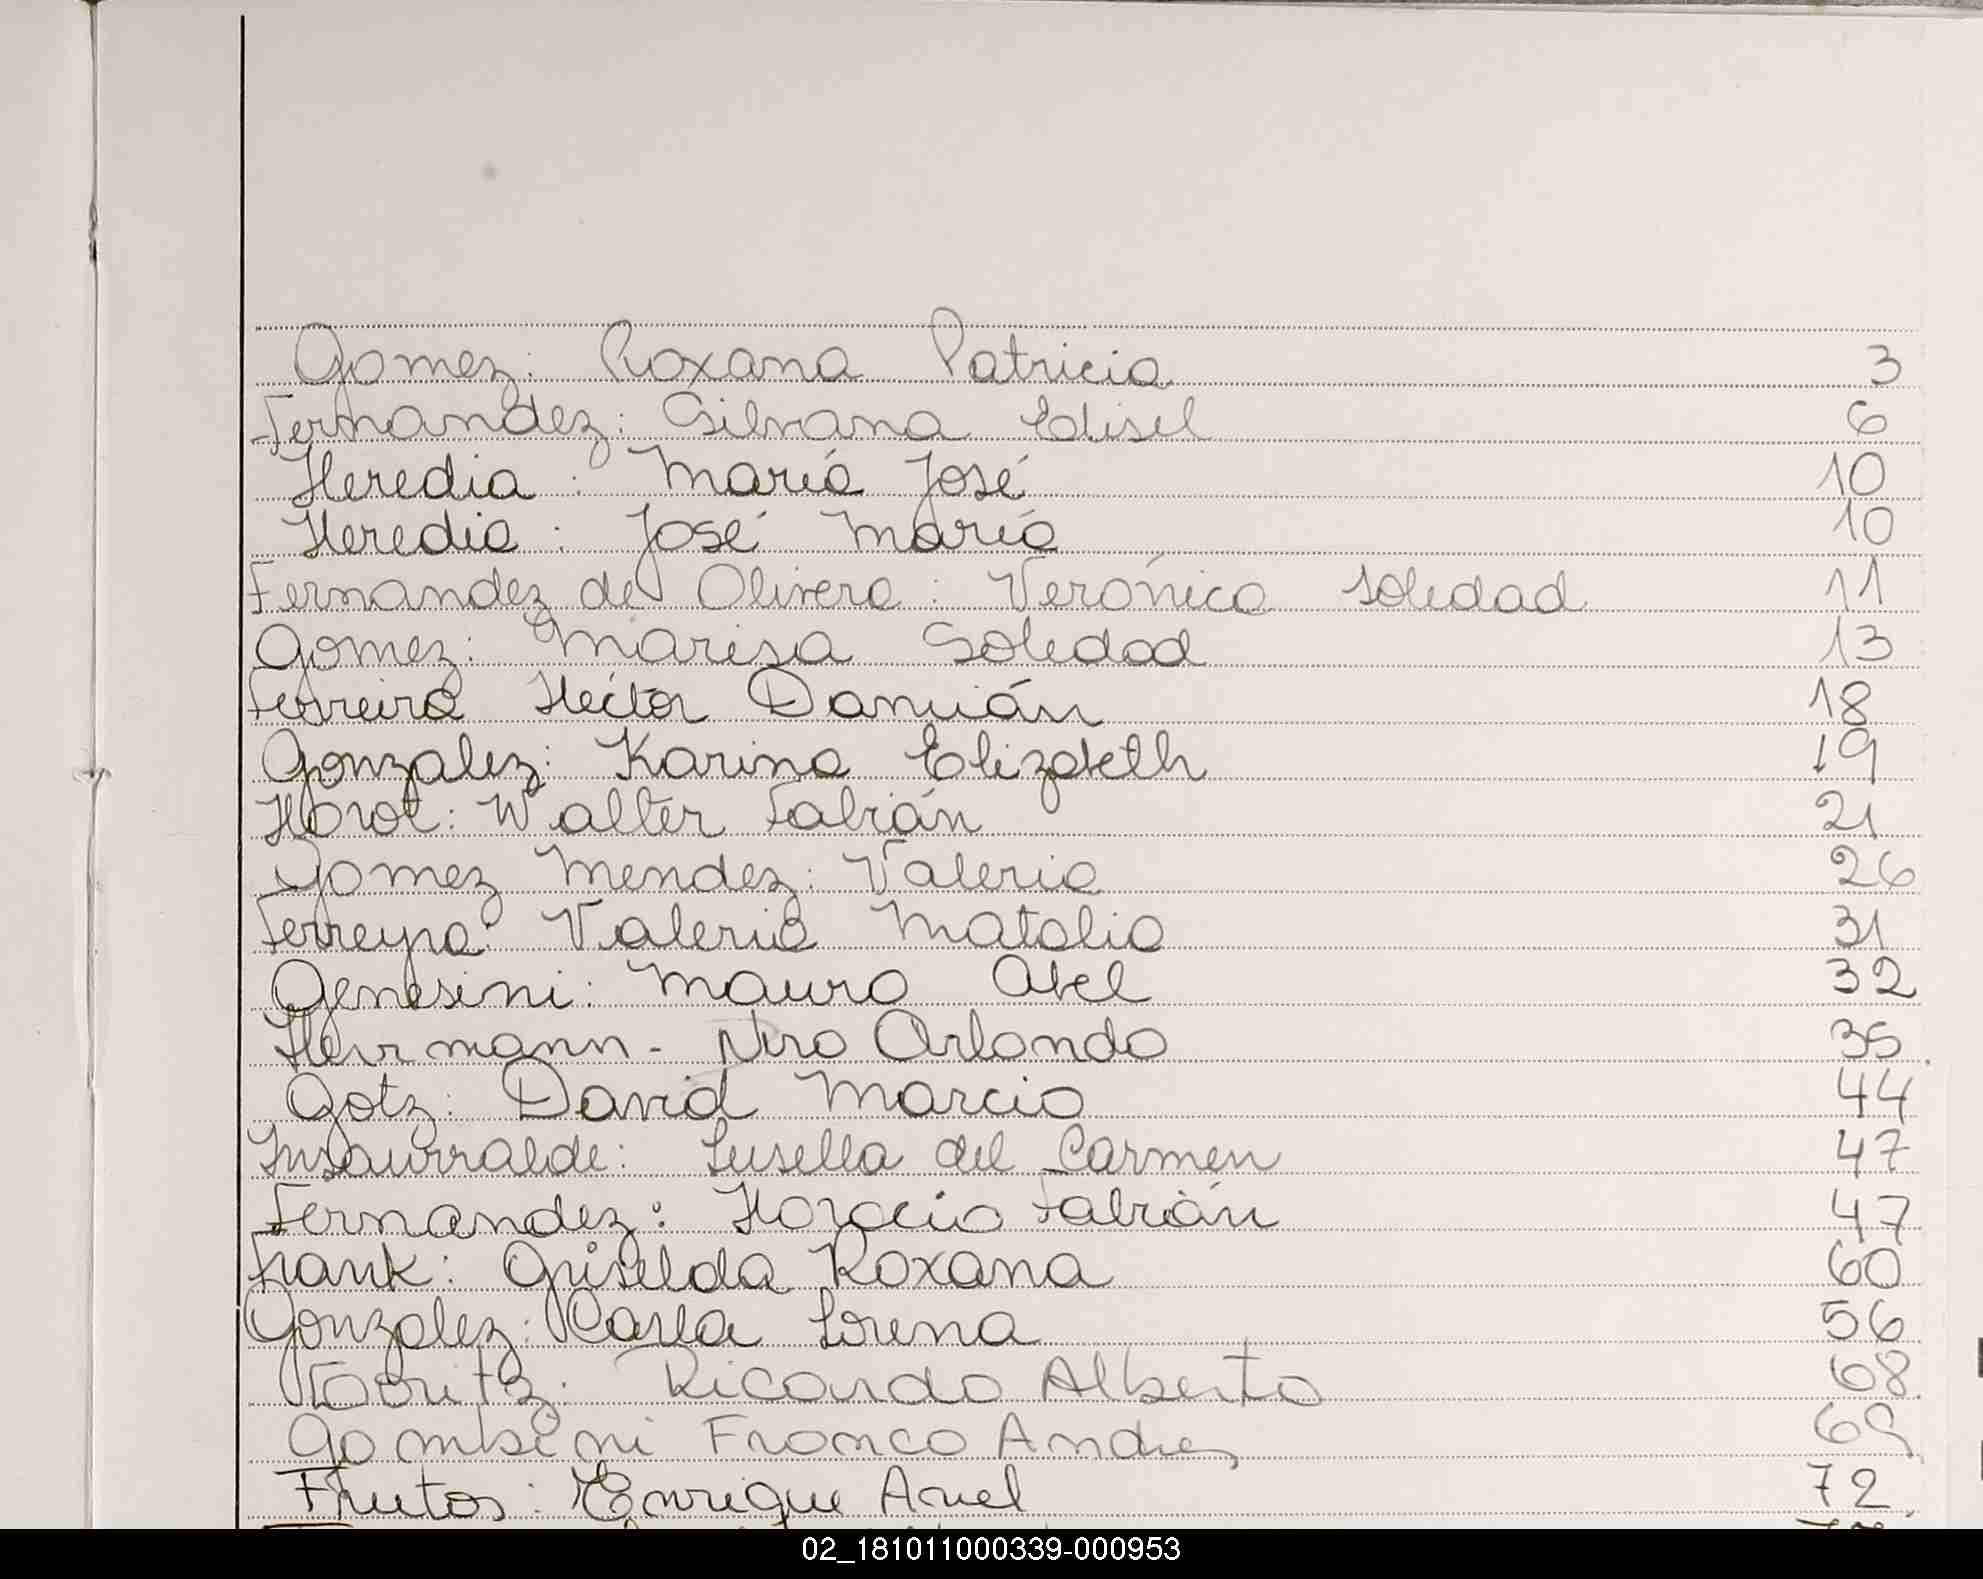 Gomez: Roxana Patricia 3
Fernandez: Silvana Edisel 6
Heredia: María José 10
Heredia: José María 10
Fernandez de Olivera: Verónica Soledad 11
Gomez: Marisa Soledad 13
Ferreira Héctor Damián 18
Gonzalez: Karina Elizabeth 19
Horot: Walter Fabián 21
Gomez Mendez: Valeria 26
Ferreyra: Valeria Natalia 31
Genesini: Mauro Abel 32
Herrmann - Niro Orlando 35
Gotz: David Marcio 44
Insaurralde: Lusella del Carmen 47
Fernandez: Horacio Fabián 47
Frank: Griselda Roxana 60
Gonzalez: Carla Lorena 56
Ricardo Alberto 68
Gombini Franco Andres 69
Frutos: Enrique Ariel 72
02_181011000339-000953